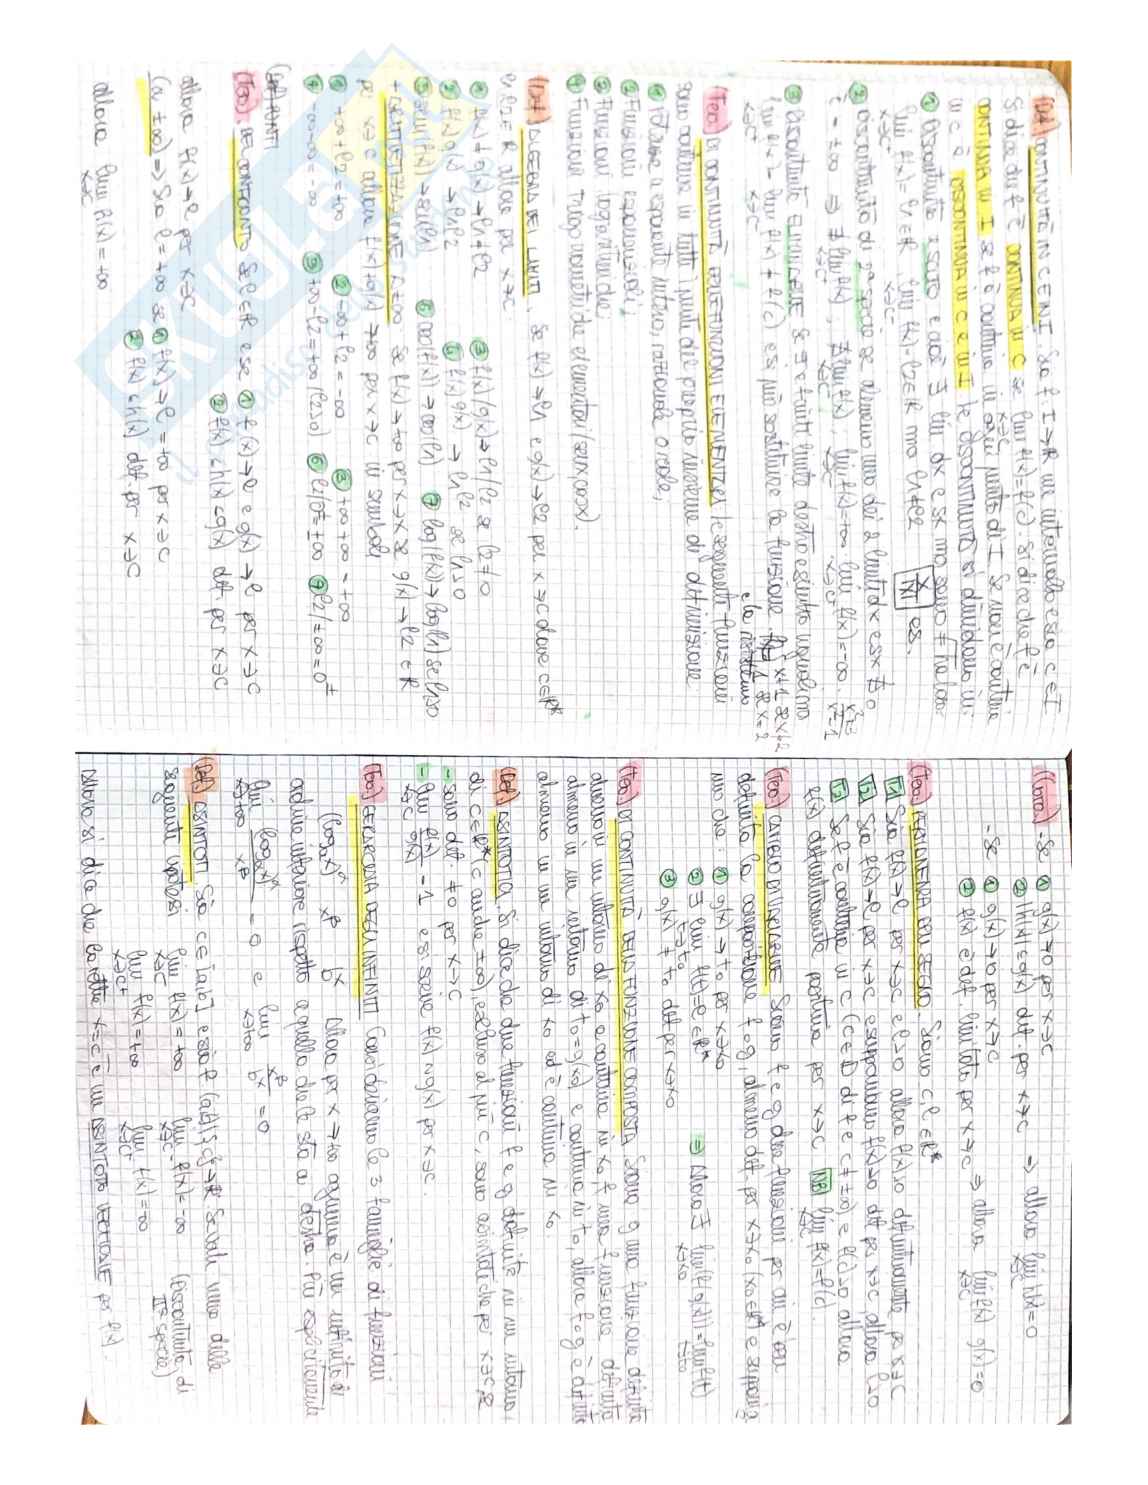 (Def) CONTINUITÀ IN C E IN I. Sia f: I→R un intervallo e sia c∈I
Si dice che f è CONTINUA IN C se lim x→c f(x)=f(c). Si dice che f è
CONTINUA IN I se f è continua in ogni punto di I. Se non è continua
in c è DISCONTINUA IN C E IN I. Le discontinuità si dividono in:
① Discontinuità a SALTO e cioè ∃ lim dx e sx ma sono ≠ tra loro
lim x→c⁺ f(x)=l1∈R, lim x→c⁻ f(x)=l2∈R ma l1≠l2 es.
② Discontinuità di 2ª specie se almeno uno dei 2 limiti dx e sx ∄ o
è = ±∞ ⇒ ∄ lim x→c⁺ f(x), ∄ lim x→c⁻ f(x), lim f(x)=+∞ lim f(x)=-∞.
③ Discontinuità ELIMINABILE se ∃ ed i limiti destro e sinistro uguali ma
lim x→c⁺ f(x)= lim x→c⁻ f(x) ≠ f(c) e si può sostituire la funzione.
(Teo) DI CONTINUITÀ DELLE FUNZIONI ELEMENTARI. Le seguenti funzioni
sono continue in tutti i punti del proprio insieme di definizione
① Potenze a esponente intero, razionale o reale,
② Funzioni esponenziali;
③ Funzioni logaritmiche
④ Funzioni trigonometriche elementari (senx, cosx).
(Def) ALGEBRA DEI LIMITI. Se f(x)→l1 e g(x)→l2 per x→c dove c∈R*
e l1,l2∈R allora per x→c
① f(x)+g(x)→l1+l2 ③ f(x)/g(x)→l1/l2 se l2≠0
② f(x)g(x)→l1l2
⑤ sen(f(x))→sen(l1) ⑥ cos(f(x))→cos(l1) ⑦ log(f(x))→log(l1) se l1>0
+ ARITMETIZZAZIONE DI ±∞ se f(x)→+∞ per x→c e g(x)→l2∈R
per x→c allora f(x)+g(x)→+∞ per x→c. in simboli
① +∞+l2=+∞ ② -∞+l2=-∞ ③ +∞+∞=+∞
④ -∞-∞=-∞ ⑤ +∞·l2=+∞ (l2>0) ⑥ l2/0±=±∞ ⑦ l2/±∞=0±
(Teo). DEL CONFRONTO Se l∈R e se ① f(x)→l e g(x)→l per x→c
② f(x)≤h(x)≤g(x) def per x→c
allora h(x)→l per x→c
(a ±∞) ⇒ Sia l=+∞ se ① f(x)→l=+∞ per x→c
② f(x)≤h(x) def. per x→c
allora lim x→c h(x)=+∞
(Nota) -Se ① g(x)→0 per x→c
② |h(x)|≤g(x) def. per x→c ⇒ allora lim x→c h(x)=0
-Se ① g(x)→0 per x→c
② f(x) è def. limitata per x→c ⇒ allora lim x→c f(x)g(x)=0
(Teo). PERMANENZA DEL SEGNO. Siano c,l∈R*
1. Sia f(x)→l per x→c e l>0 allora f(x)>0 definitivamente per x→c
2. Sia f(x)→l per x→c e supponiamo f(x)≥0 def per x→c, allora l≥0.
3. Se f è continua in c (c∈D di f e c≠±∞) e f(c)>0 allora
f(x) definitivamente positiva per x→c NB lim x→c f(x)=f(c).
(Teo). CAMBIO DI VARIABILE Siano f e g due funzioni per cui è ben
definita la composizione f∘g, almeno def. per x→x0 (x0∈R* e supponia
mo che: ① g(x)→t0 per x→x0
② ∃ lim t→t0 f(t)=l∈R* ⇒ Allora ∃ lim x→x0 f(g(x))=lim t→t0 f(t)
③ g(x)≠t0 def per x→x0
(Teo) DI CONTINUITÀ DELLA FUNZIONE COMPOSTA Siano g una funzione definita
almeno in un intorno di x0 e continua in x0, f una funzione definita
almeno in un intorno di t0=g(x0) e continua in t0, allora f∘g è definita
almeno in un intorno di x0 ed è continua in x0.
(Def). ASINTOTICI. Si dice che due funzioni f e g definite in un intorno
di c∈R* (c anche ±∞), escluso al più c, sono asintotiche per x→c se
- sono def ≠0 per x→c
- lim x→c f(x)/g(x)=1 e si scrive f(x)~g(x) per x→c.
(Teo) GERARCHIA DEGLI INFINITI Consideriamo le 3 famiglie di funzioni
(log_a x)^α x^β b^x Allora per x→+∞ ognuno è un infinito di
ordine inferiore rispetto a quello che le sta a destra. Più esplicitamente
lim x→+∞ (log_a x)^α/x^β=0 e lim x→+∞ x^β/b^x=0
(Def). ASINTOTI Sia c∈[a,b] e sia f: (a,b)\{c}→R Se vale una delle
seguenti ipotesi lim x→c⁻ f(x)=+∞ lim x→c⁻ f(x)=-∞ (discontinuità di
lim x→c⁺ f(x)=+∞ lim x→c⁺ f(x)=-∞ IIª specie)
Allora si dice che la retta x=c è un ASINTOTO VERTICALE per f(x).